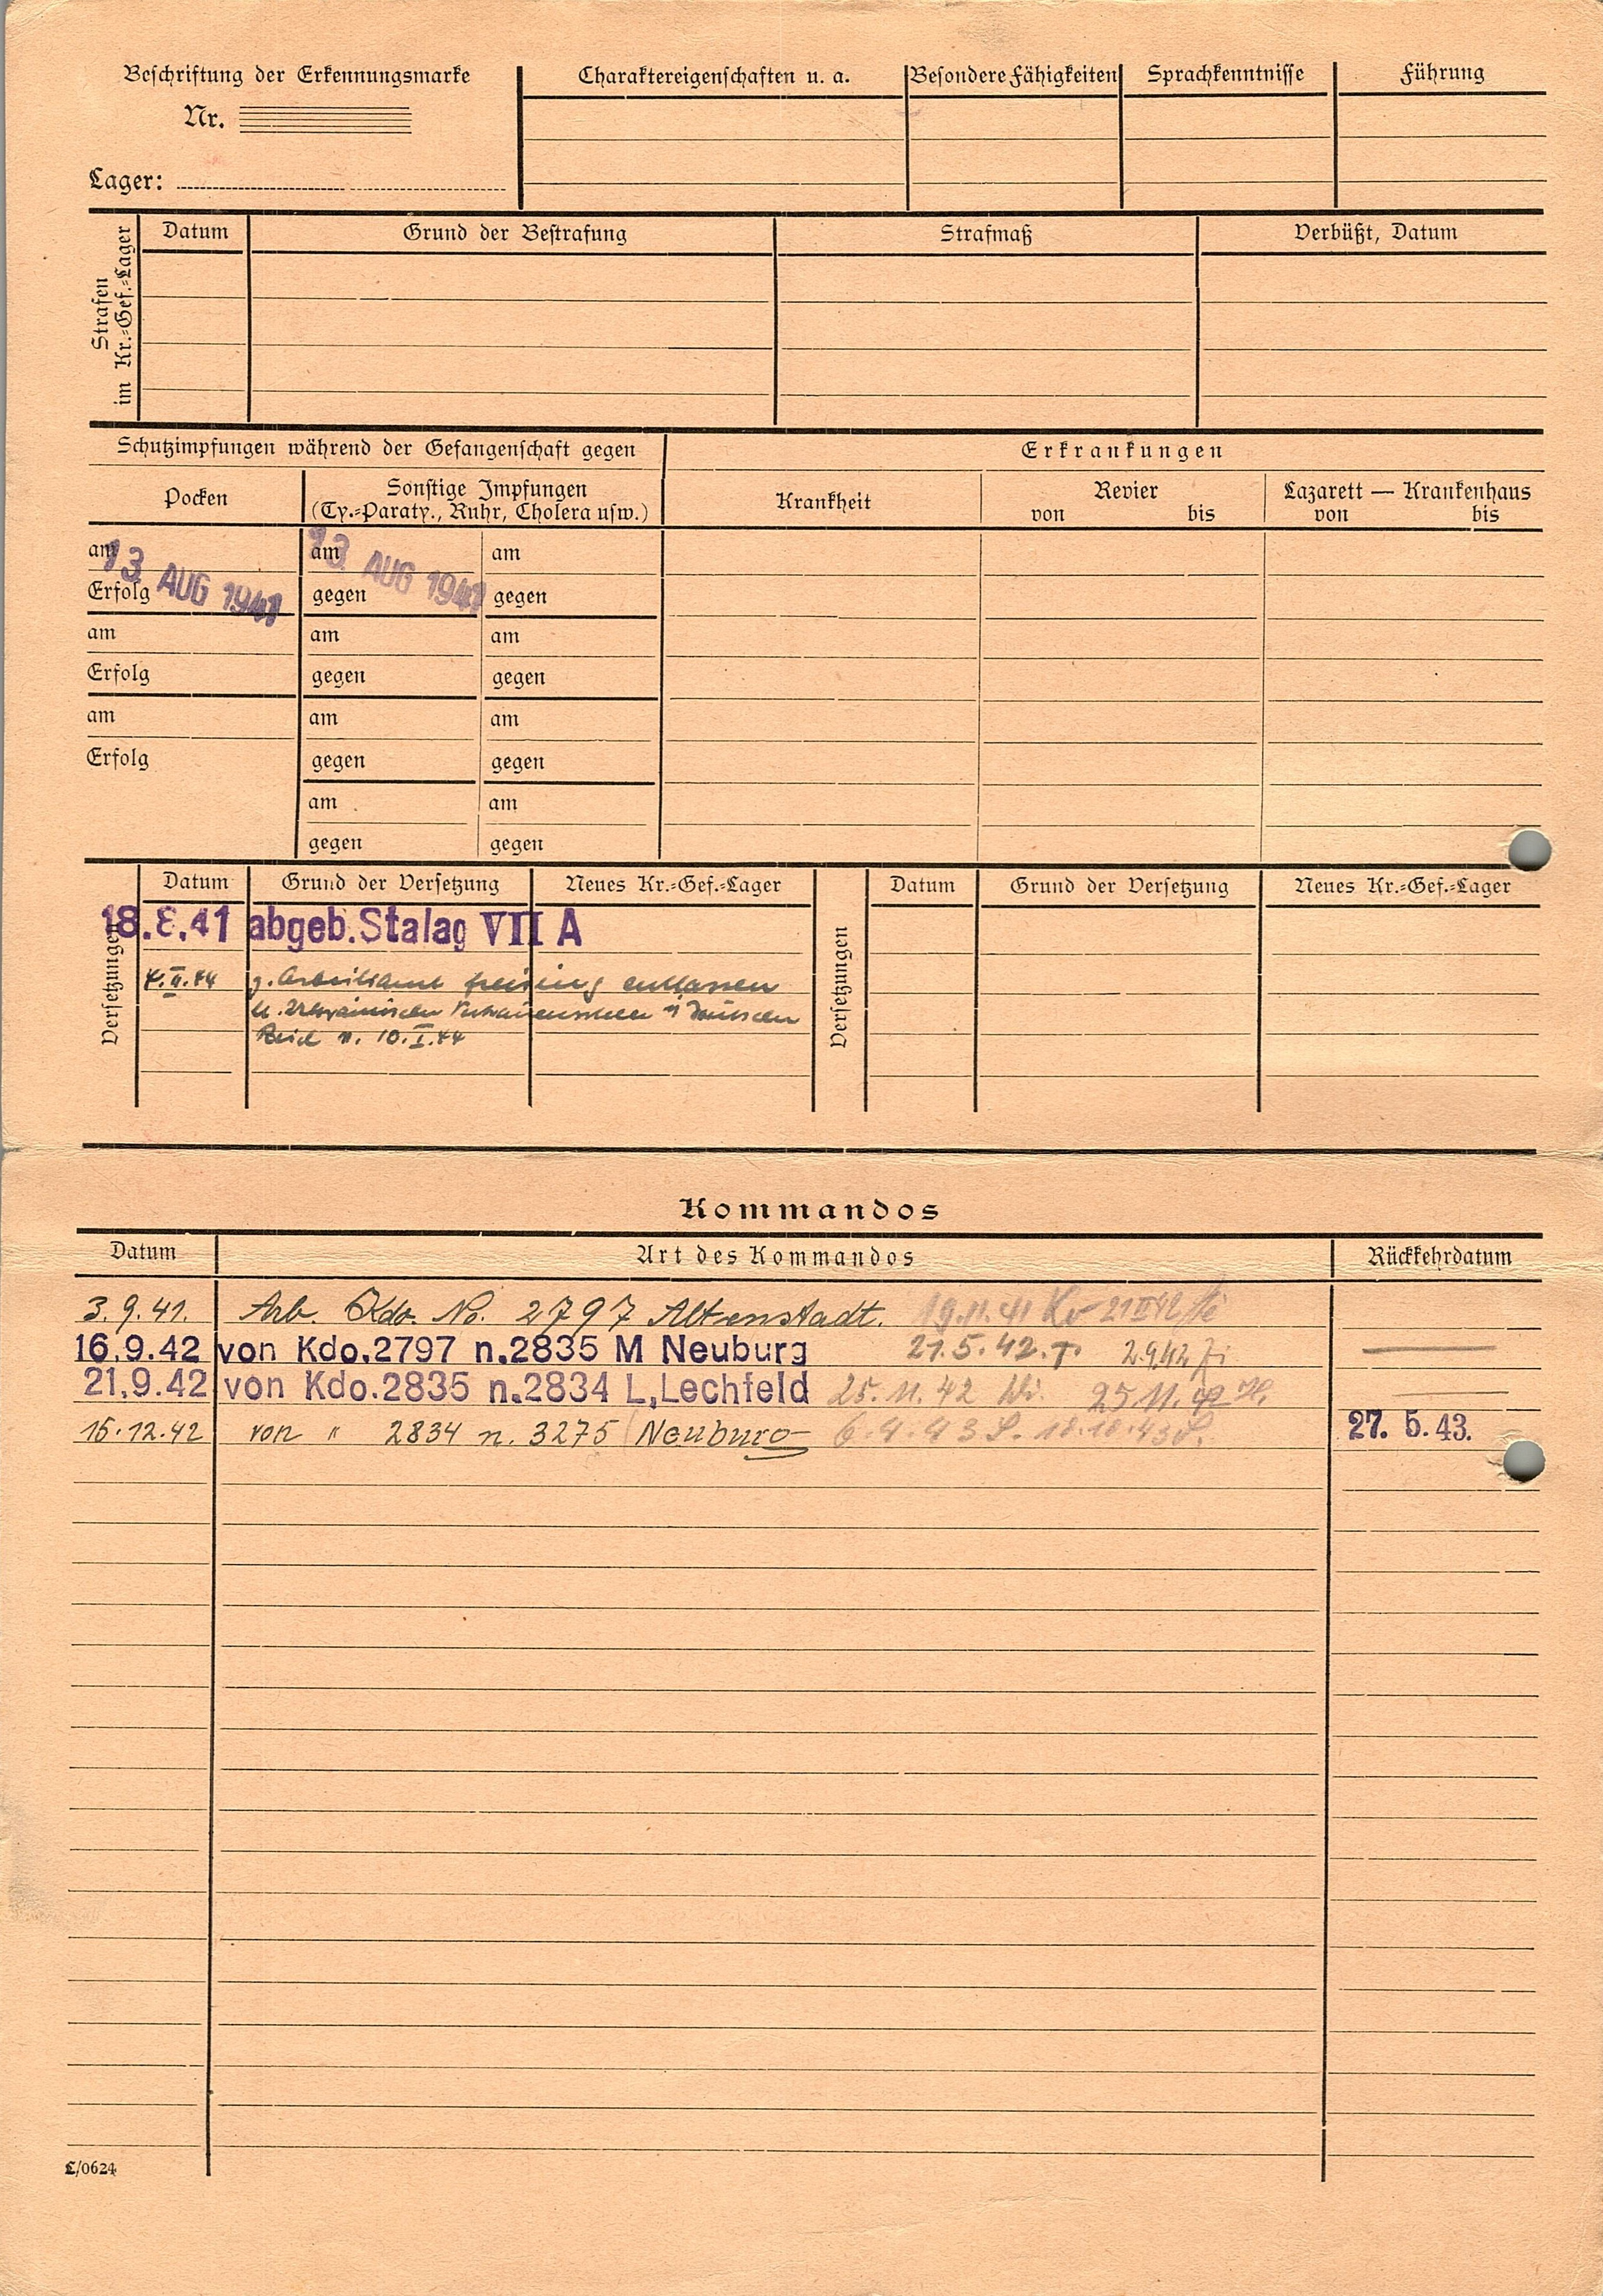 Beschriftung der Erkennungsmarke
Nr.
Lager:
Charaktereigenschaften u. a.
Besondere Fähigkeiten
Sprachkenntnisse
Führung
Strafen
im Kr.-Gef.-Lager
Datum
Grund der Bestrafung
Strafmaß
Verbüßt, Datum
Schutzimpfungen während der Gefangenschaft gegen
Erkrankungen
Pocken
Sonstige Impfungen
(Ty.-Paraty., Ruhr, Cholera usw.)
Krankheit
Revier
von bis
Lazarett — Krankenhaus
von bis
am am am
13. AUG 1941 13. AUG 1941
Erfolg gegen gegen
am am am
Erfolg gegen gegen
am am am
Erfolg gegen gegen
am am
gegen gegen
Versetzungen
Datum Grund der Versetzung Neues Kr.-Gef.-Lager
18.8.41 abgeb. Stalag VII A
4.II.44 z. Arbeitsamt Freising entlassen
lt. Ukrainischen Vertrauensstelle i. Deutschen
Reich v. 10.I.44
Versetzungen
Datum Grund der Versetzung Neues Kr.-Gef.-Lager
Kommandos
Datum Art des Kommandos Rückkehrdatum
3.9.41. Arb. Kdo. No. 2797 Altenstadt. 19.11.41
16.9.42 von Kdo.2797 n.2835 M Neuburg 21.5.42.T. 2.9.42
21.9.42 von Kdo.2835 n.2834 L,Lechfeld 25.11.42 25.11.42
15.12.42 von " 2834 n. 3275 Neuburg 6.9.43 S. 18.10.43 S. 27. 5. 43.
L/0624